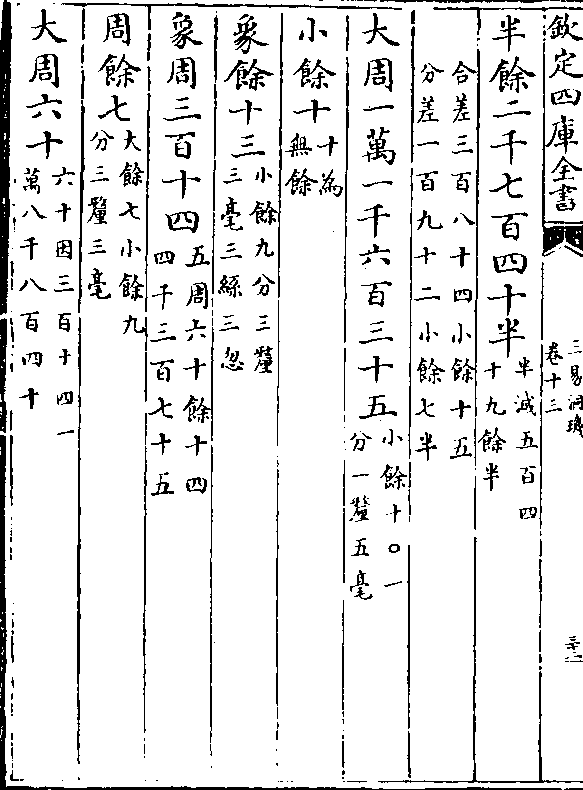 欽定四庫全書
三易洞璣
卷十三
半餘二千七百四十半
半減五百四
十九餘半
合差三百八十四小餘十五
分差一百九十二小餘七半
大周一萬一千六百三十五
小餘十〇一
分一釐五毫
小餘十
十為
無餘
象餘十三
小餘九分三釐
三毫三絲三忽
象周三百十四
五周六十餘十四
四千三百七十五
周餘七
大餘七小餘九
分三釐三毫
大周六十
六十因三百十四一
萬八千八百四十